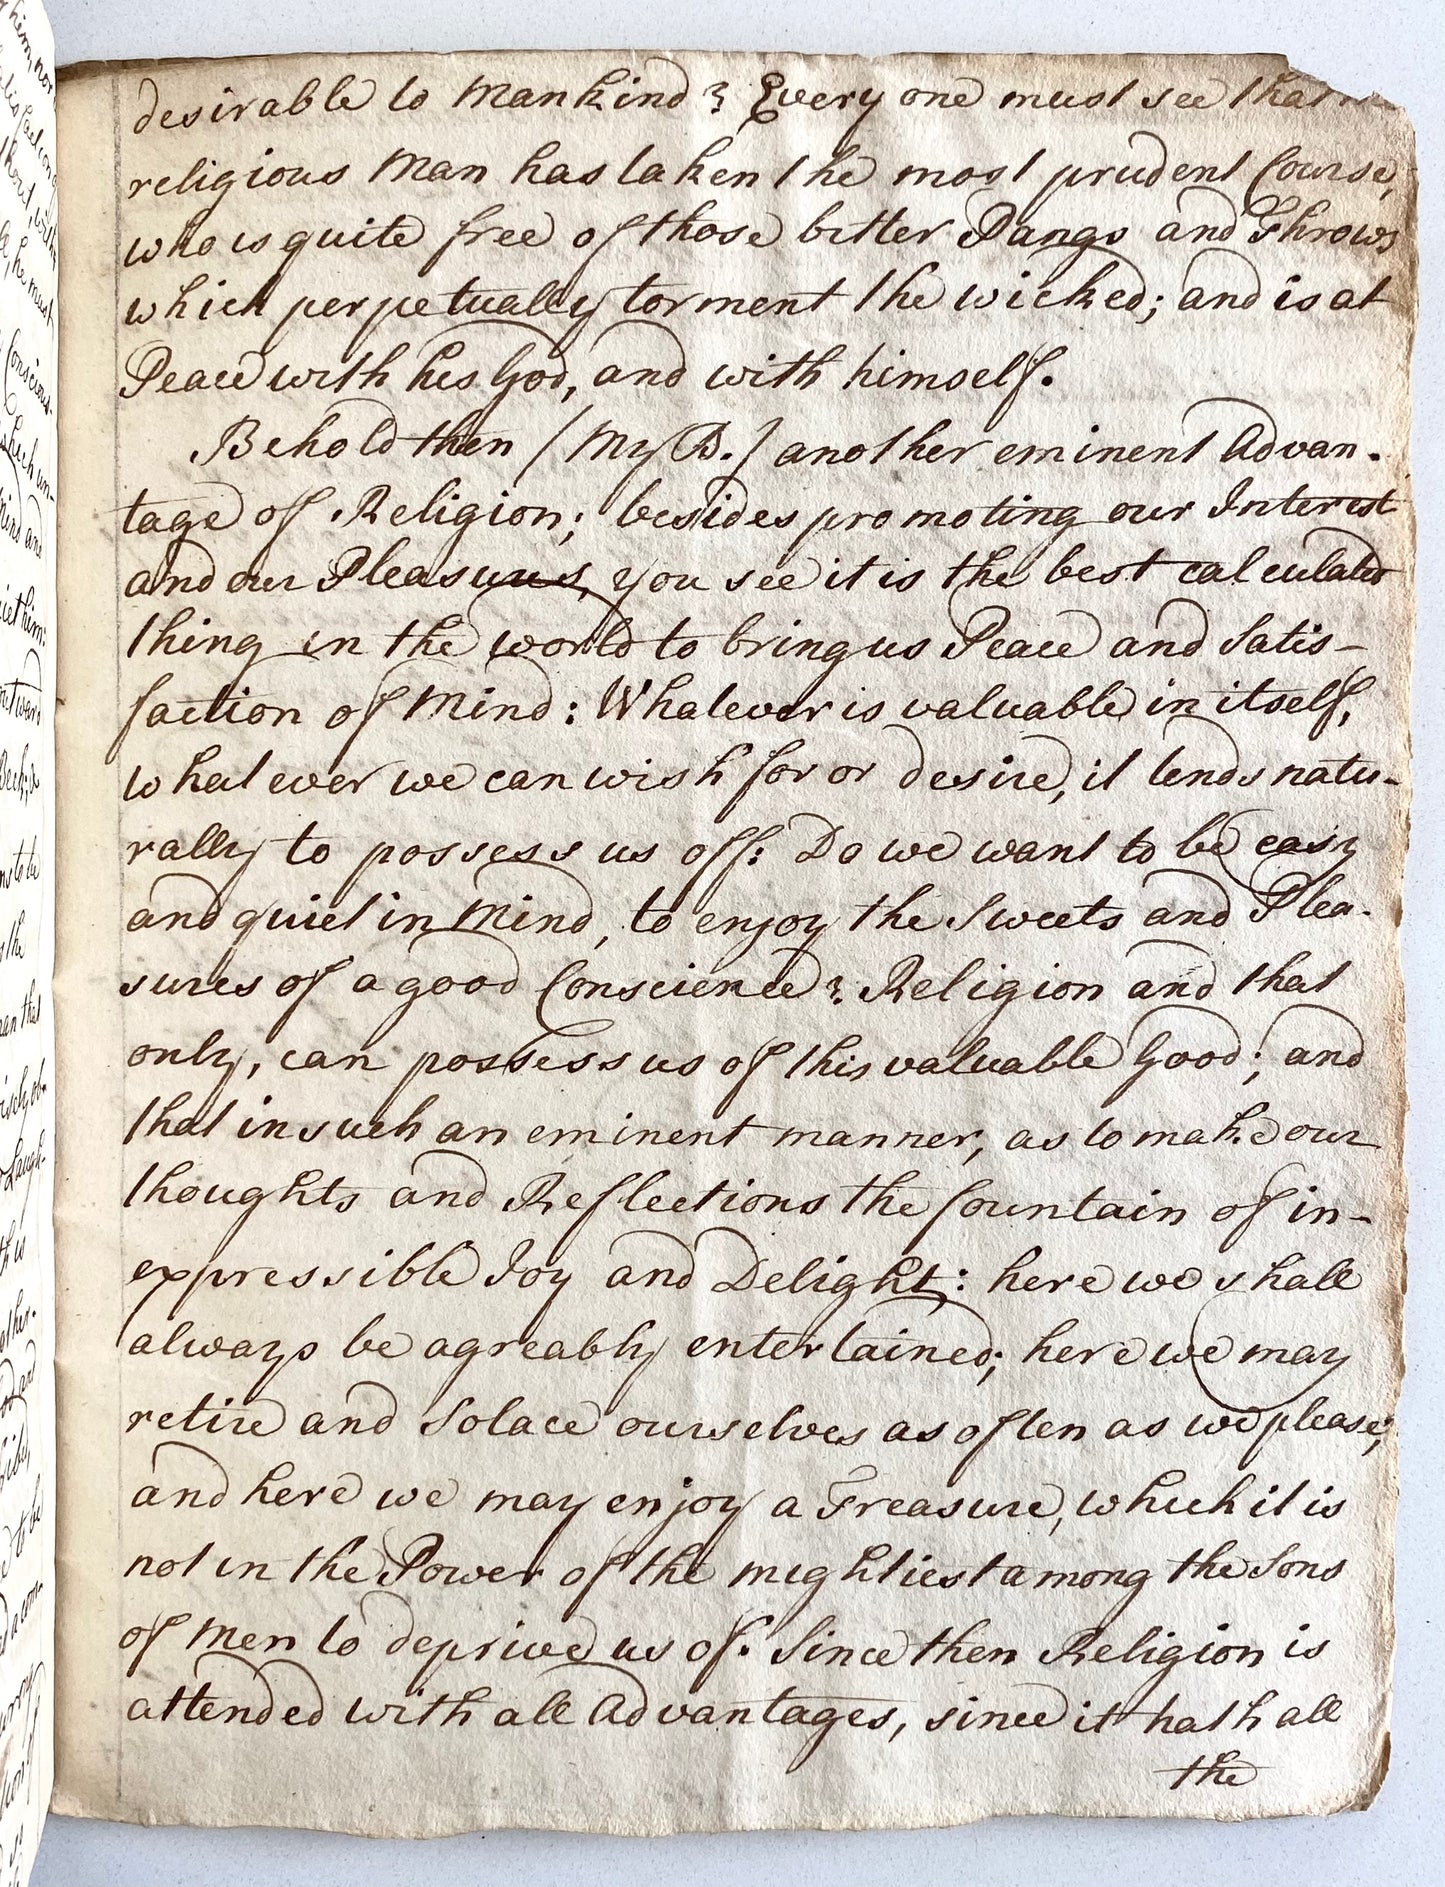 desirable to Mankind? Every one must see that
religious Man has taken the most prudent Course,
who is quite free of those bitter Pangs and Throws
which perpetually torment the wicked; and is at
Peace with his God, and with himself.
Behold then (My B.) another eminent Advan-
tage of Religion; besides promoting our Interest
and our Pleasures, you see it is the best calculated
thing in the world to bring us Peace and Satis-
faction of Mind: Whatever is valuable in itself,
whatever we can wish for or desire, it tends natu-
rally to possess us off: Do we want to be easy
and quiet in Mind, to enjoy the Sweets and Plea-
sures of a good Conscience? Religion and that
only, can possess us of this valuable Good; and
that in such an eminent manner, as to make our
thoughts and Reflections the fountain of in-
expressible Joy and Delight: here we shall
always be agreably entertained; here we may
retire and Solace ourselves as often as we please;
and here we may enjoy a Treasure, which it is
not in the Power of the mightiest among the Sons
of Men to deprive us of. Since then Religion is
attended with all Advantages, since it hath all
the